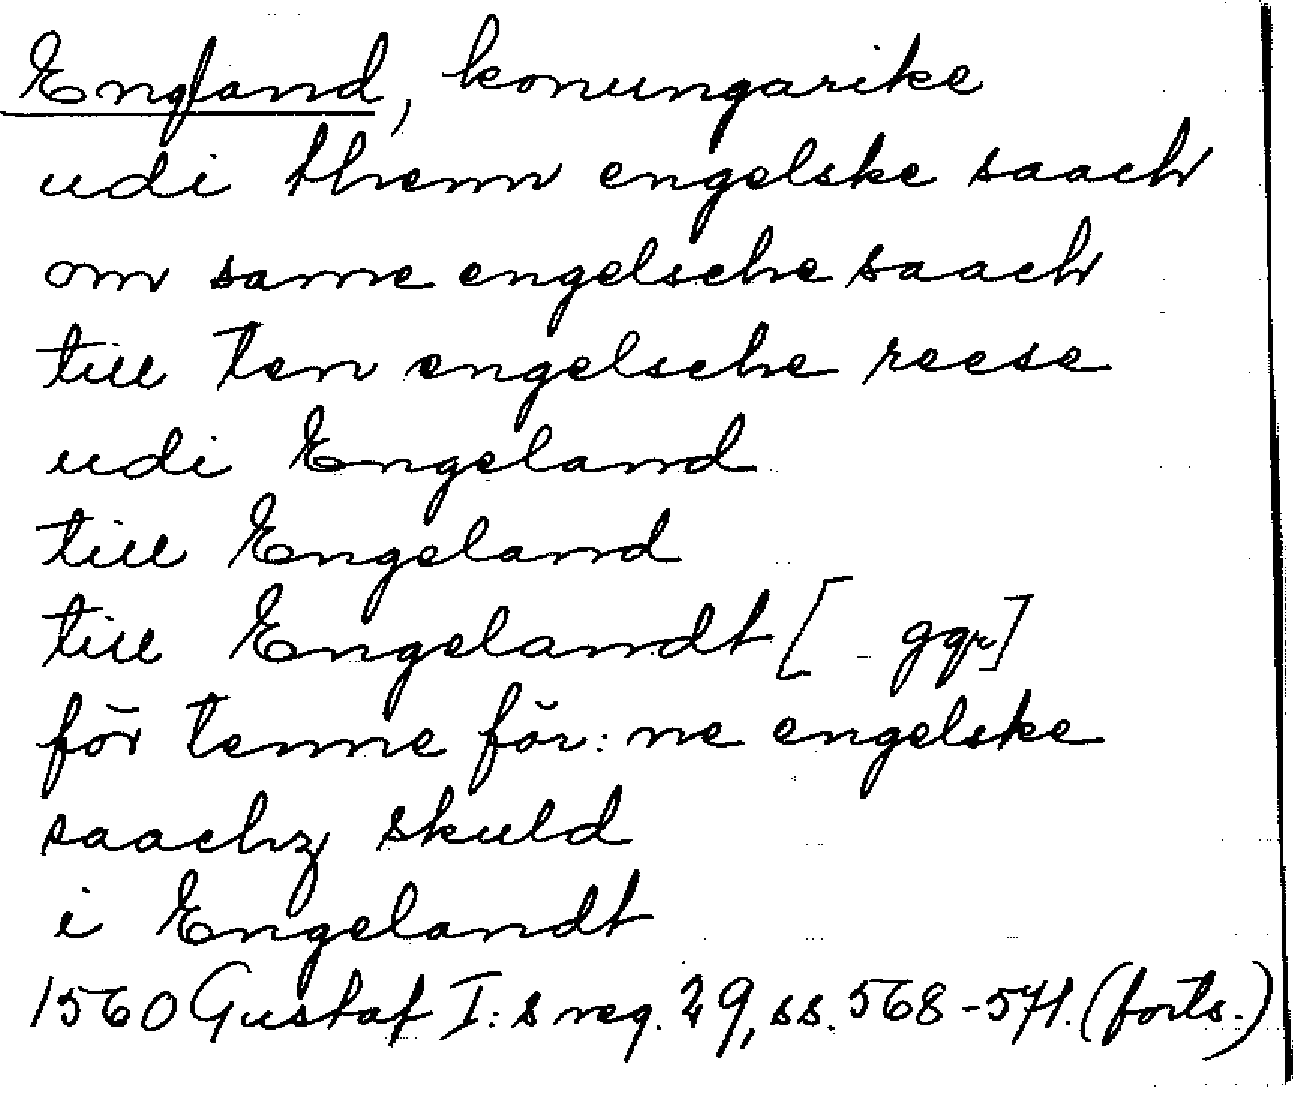 England, konungarike
udi thenn engelske saach
om same engelsche saach
till ten engelsche reese
udi Engeland
till Engeland
till Engelandt [ ggr]
för tenne för:ne engelske
saachz skuld
i Engelandt
1560 Gustaf I:s reg. 29, ss. 568-571. (forts.)